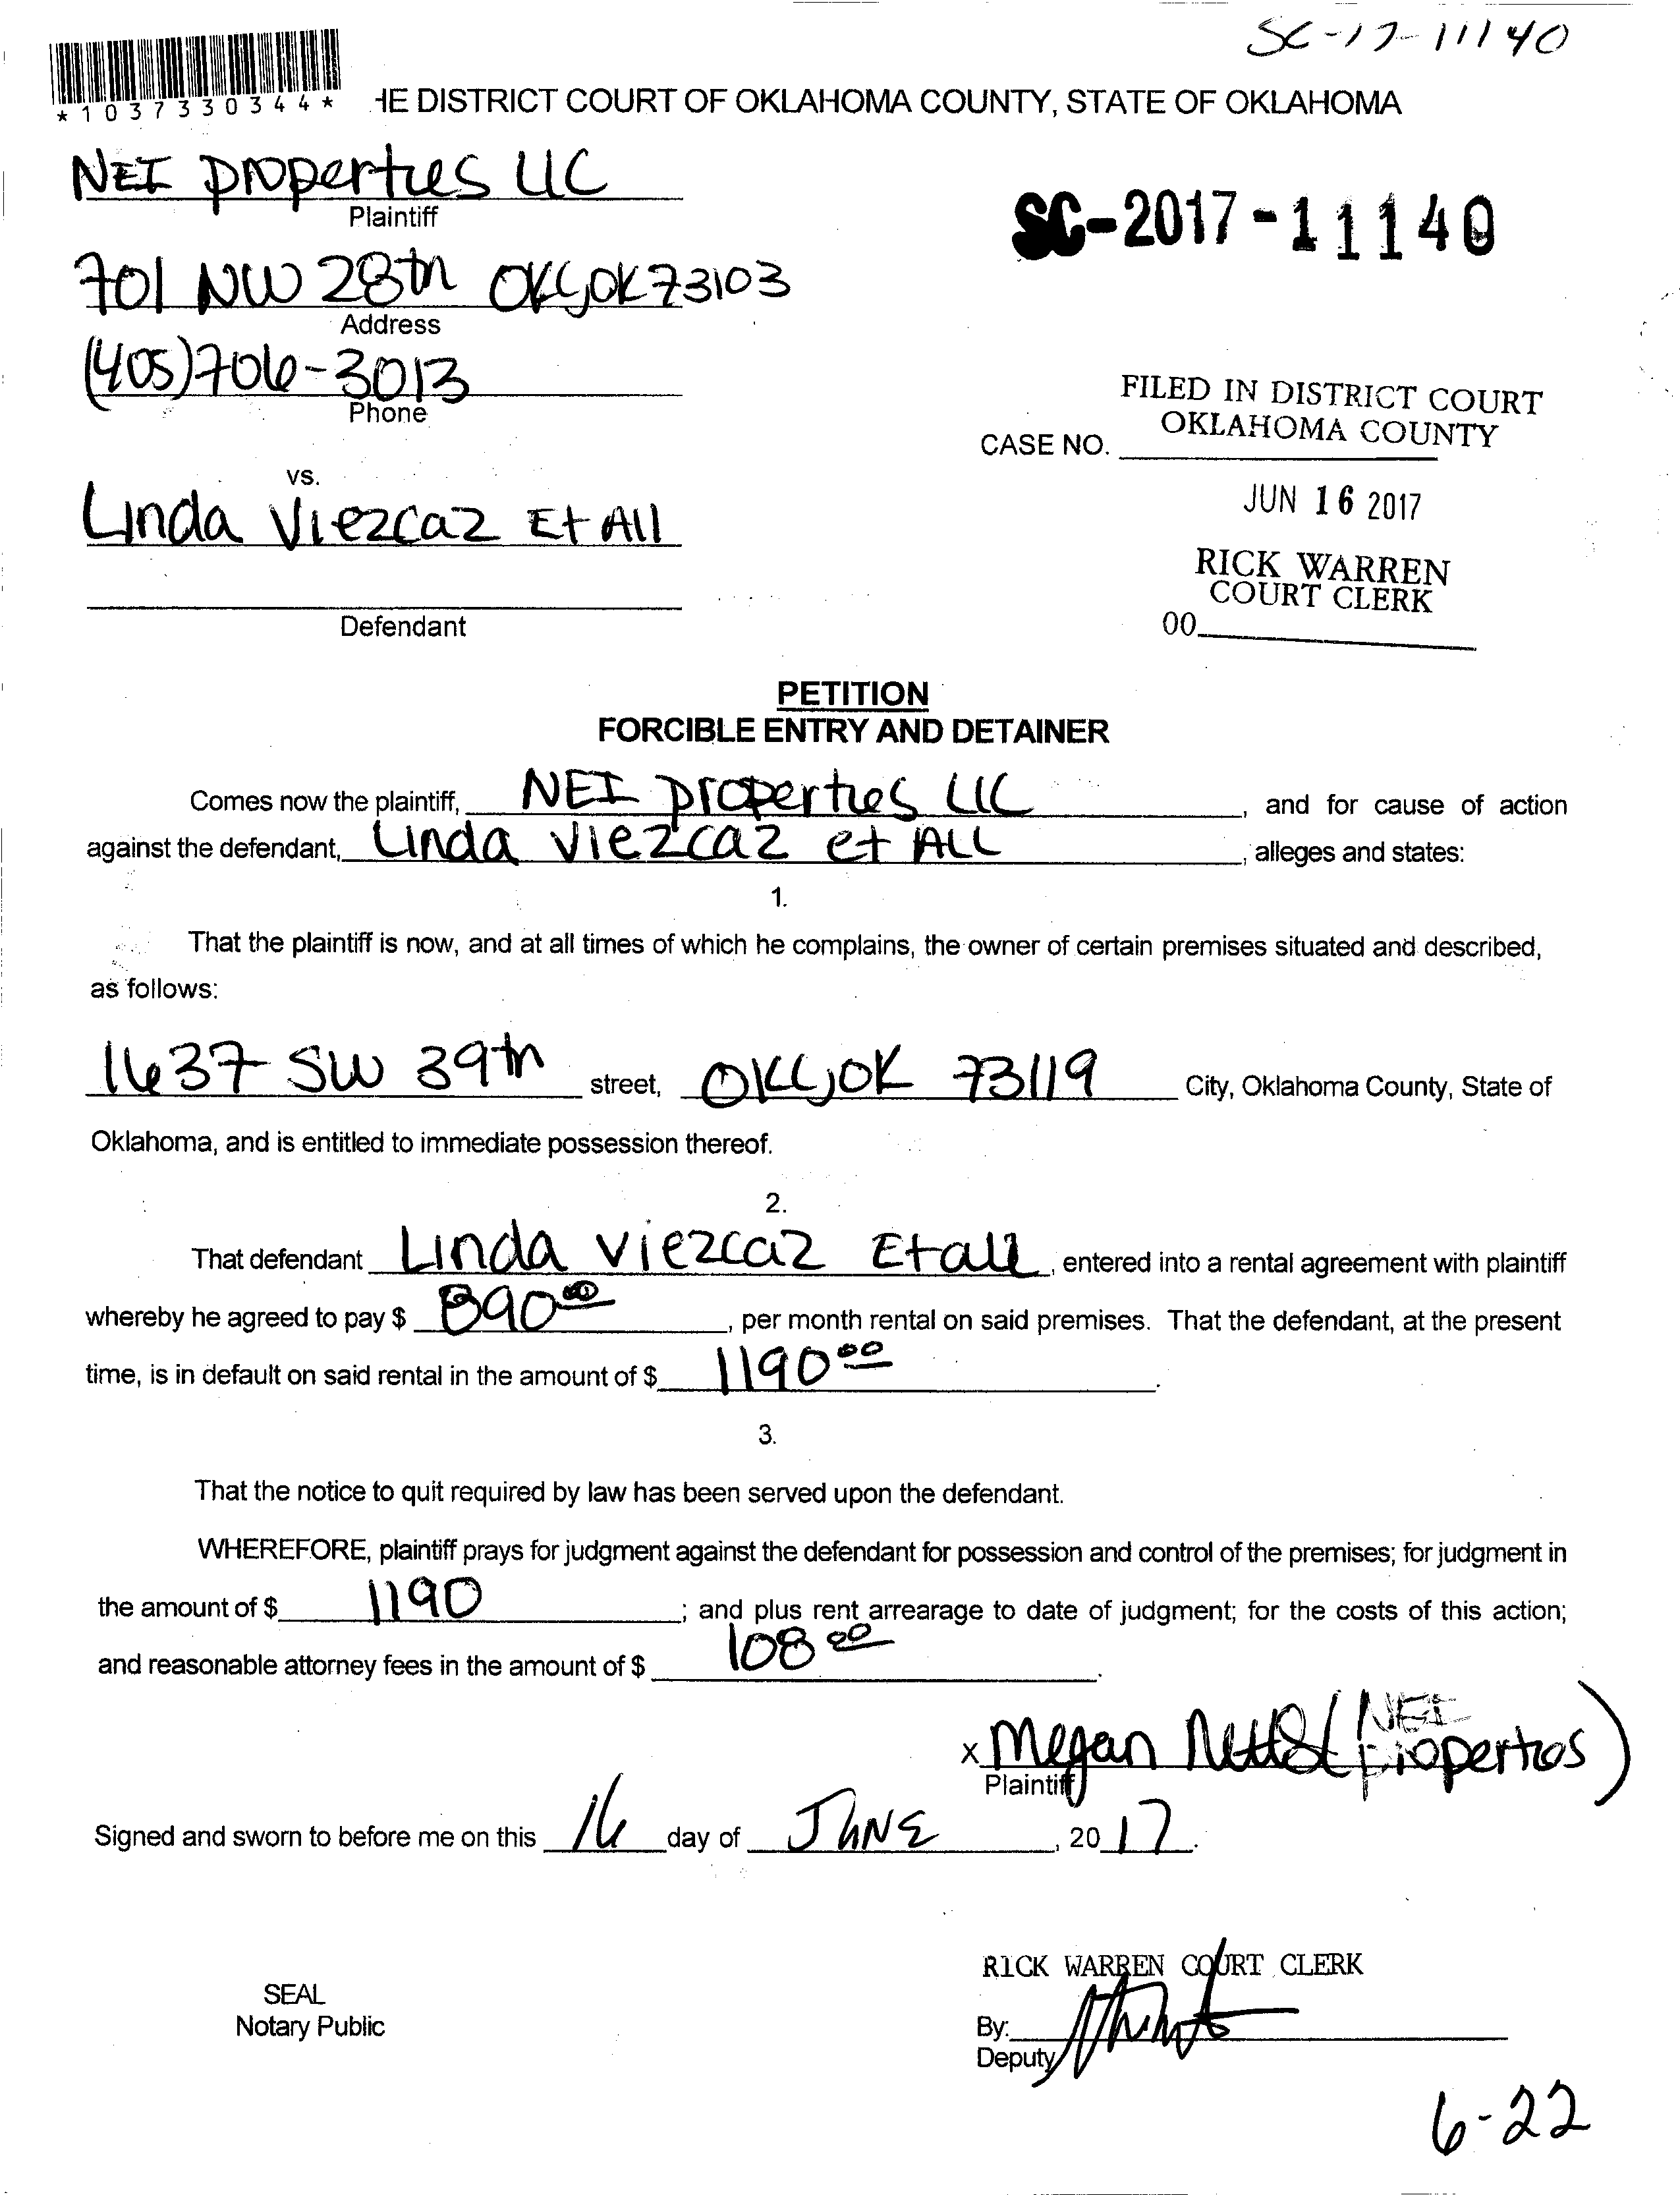 SC-17-11140
*1037330344*
HE DISTRICT COURT OF OKLAHOMA COUNTY, STATE OF OKLAHOMA
NEI properties LLC
Plaintiff
SC-2017-11140
701 NW 28th OKC, OK 73103
Address
(405)706-3013
Phone
FILED IN DISTRICT COURT
OKLAHOMA COUNTY
CASE NO.
vs.
JUN 16 2017
Linda Viezcaz Et All
RICK WARREN
COURT CLERK
00
Defendant
PETITION
FORCIBLE ENTRY AND DETAINER
Comes now the plaintiff, NEI properties LLC, and for cause of action
against the defendant, Linda Viezcaz et ALL, alleges and states:
1.
That the plaintiff is now, and at all times of which he complains, the owner of certain premises situated and described,
as follows:
1637 SW 39th street, OKC, OK 73119 City, Oklahoma County, State of
Oklahoma, and is entitled to immediate possession thereof.
2.
That defendant Linda Viezcaz Et all, entered into a rental agreement with plaintiff
whereby he agreed to pay $ 890 00, per month rental on said premises. That the defendant, at the present
time, is in default on said rental in the amount of $ 1190 00.
3.
That the notice to quit required by law has been served upon the defendant.
WHEREFORE, plaintiff prays for judgment against the defendant for possession and control of the premises; for judgment in
the amount of $ 1190; and plus rent arrearage to date of judgment; for the costs of this action;
and reasonable attorney fees in the amount of $ 108 00.
x Megan (NEI Properties)
Plaintiff
Signed and sworn to before me on this 16 day of JUNE, 2017.
RICK WARREN COURT CLERK
SEAL
Notary Public
By:
Deputy
6-22